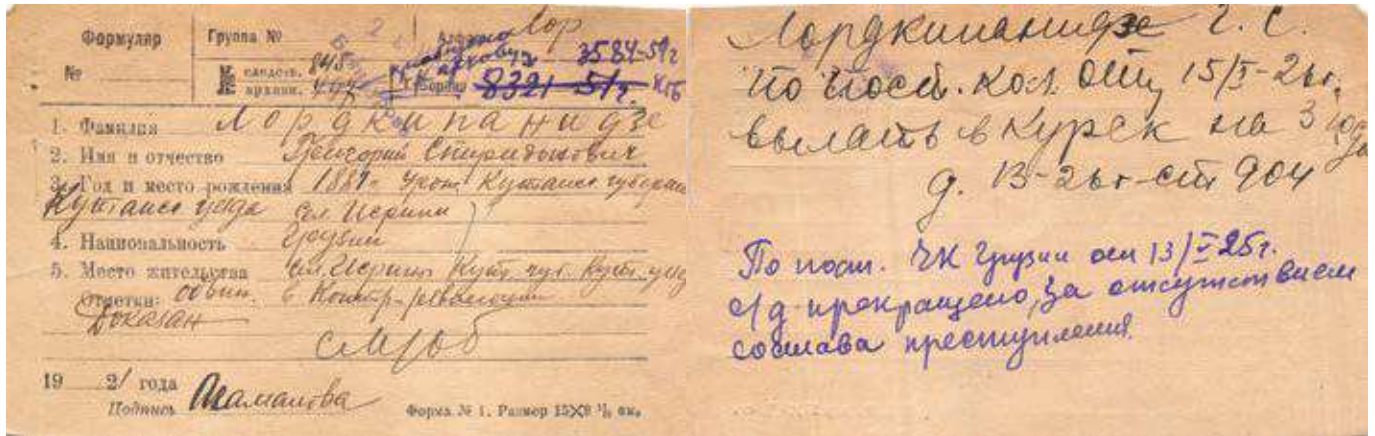 Формуляр
Группа № 2
Лор
№
№ следств. 845
№ архивн.
3584-59г
8321-51г. КГБ
1. Фамилия Лордкипанидзе
2. Имя и отчество Григорий Спиридонович
3. Год и место рождения 1881г. урож. Кутаиск губернии
Кутаиск уезда сел.
4. Национальность Грузин
5. Место жительства сел. Кут. губ. Кут. уезд
Отметки: обвин. в контр-революции
Доказан
19 21 года
Подпись Шаманова
Форма № 1. Размер 15X9 ½ см.
Лордкипанидзе Г. С.
по пост. кол. ОГПУ 15/I-26г.
выслать в Курск на 3 года
д. 13-26г-ст 904
По пост. ЧК Грузии от 13/I-25г.
с/д прекращено, за отсутствием
состава преступления.